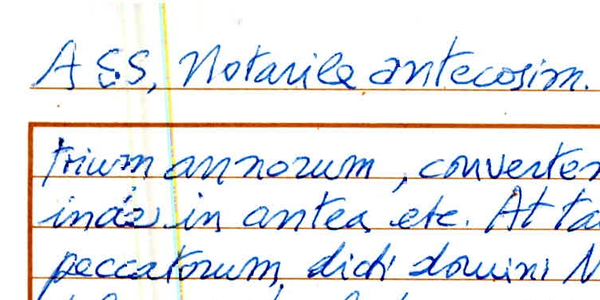 ASS, Notarile antecosim.
trium annorum, converten
inde in antea etc. At ta
peccatorum, dicti domini N